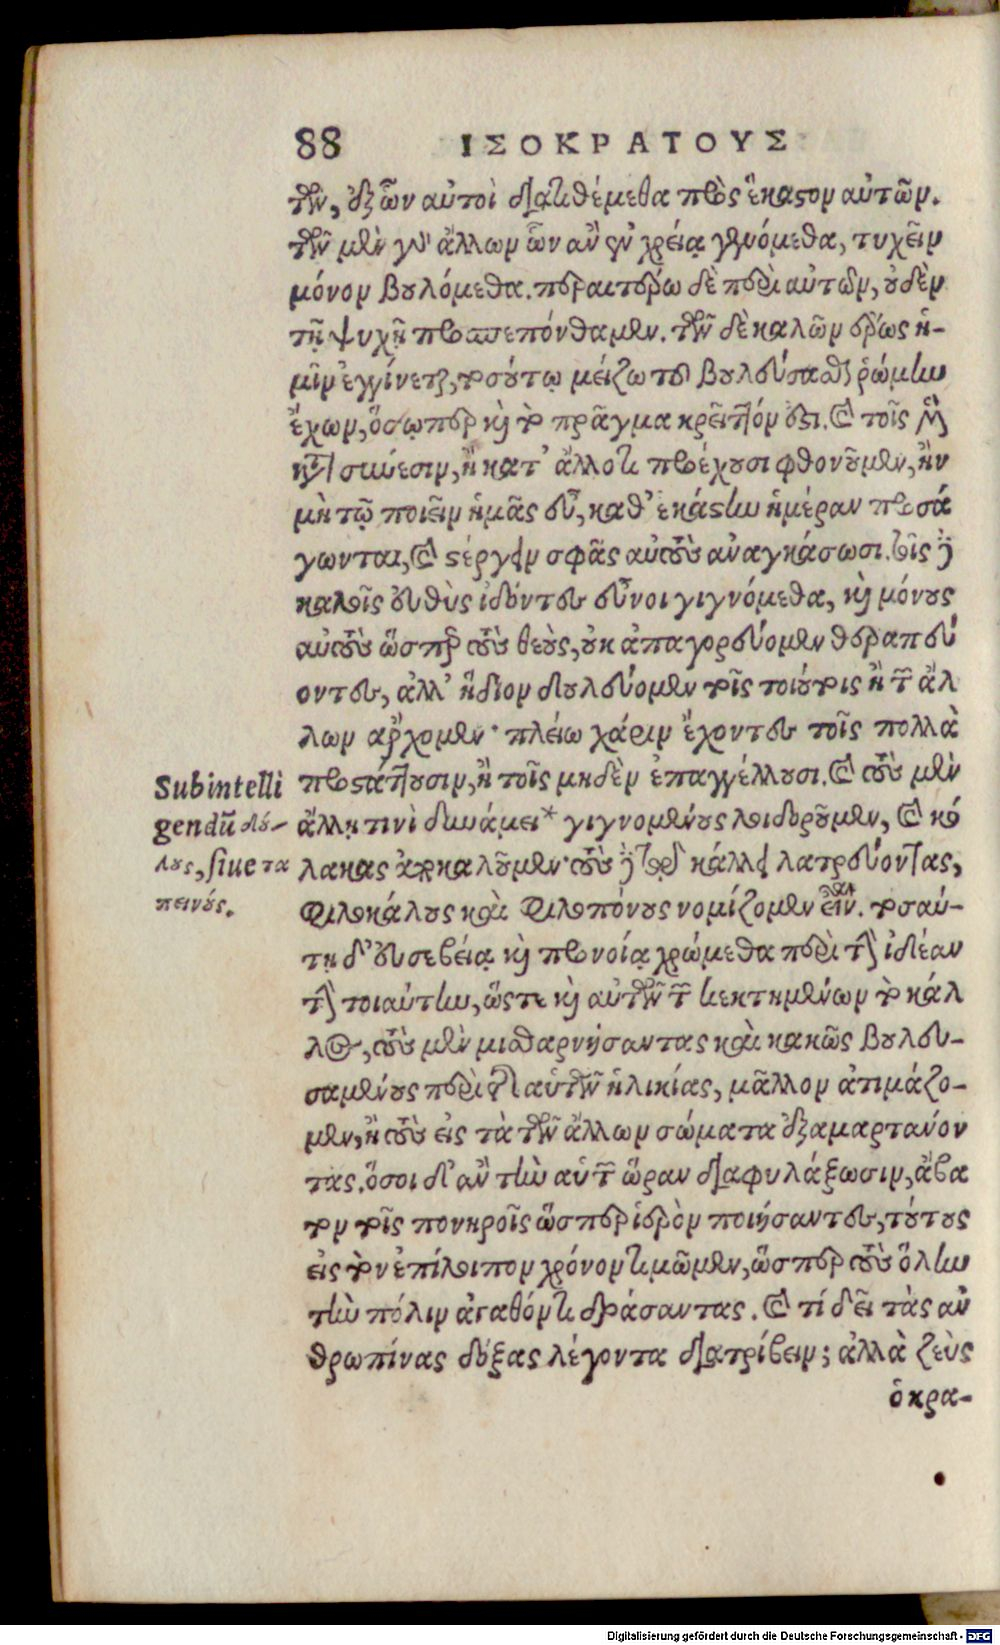 88 ΙΣΟΚΡΑΤΟΥΣ
των, ἐξ ὧν αὐτοὶ διατιθέμεθα πρὸς ἕκαστον αὐτῶν.
τῶν μὲν γὰρ ἄλλων ὧν ἂν ἐν χρείᾳ γενόμεθα, τυχεῖν
μόνον βουλόμεθα. περαιτέρω δὲ περὶ αὐτῶν, οὐδὲν
τῇ ψυχῇ προσπεπόνθαμεν. τῶν δὲ καλῶν ἔρως ἡ-
μῖν ἐγγίνεται, τοσούτῳ μείζω τοῦ βουλεύσασθαι ῥώμην
ἔχων, ὅσῳπερ καὶ τὸ πρᾶγμα κρεῖττόν ἐστι. καὶ τοῖς μὲν
κατὰ σύνεσιν, ἢ κατ' ἄλλο τι προέχουσι φθονοῦμεν, ἢν
μὴ τῷ ποιεῖν ἡμᾶς εὖ, καθ' ἑκάστην ἡμέραν προσά
γωνται, καὶ στέργειν σφᾶς αὐτοὺς ἀναγκάσωσι. τοῖς δὲ
καλοῖς εὐθὺς ἰδόντες εὖνοι γιγνόμεθα, καὶ μόνους
αὐτοὺς ὥσπερ τοὺς θεοὺς, οὐκ ἀπαγορεύομεν θεραπεύ
οντες, ἀλλ' ἥδιον δουλεύομεν τοῖς τοιούτοις ἢ τῶν ἄλ
λων ἄρχομεν· πλείω χάριν ἔχοντες τοῖς πολλὰ
προστάττουσιν, ἢ τοῖς μηδὲν ἐπαγγέλλουσι. καὶ τοὺς μὲν
ἄλλῃ τινὶ δυνάμει* γιγνομένους λοιδοροῦμεν, καὶ κό
λακας ἀποκαλοῦμεν· τοὺς δὲ τῷ κάλλει λατρεύοντας,
φιλοκάλους καὶ φιλοπόνους νομίζομεν εἶναι. τοσαύ-
τῃ δ' εὐσεβείᾳ καὶ προνοίᾳ χρώμεθα περὶ τὴν ἰδέαν
τὴν τοιαύτην, ὥστε καὶ αὐτῶν τῶν κεκτημένων τὸ κάλ
λος, τοὺς μὲν μισθαρνήσαντας καὶ κακῶς βουλευ-
σαμένους περὶ τῆς αὑτῶν ἡλικίας, μᾶλλον ἀτιμάζο-
μεν, ἢ τοὺς εἰς τὰ τῶν ἄλλων σώματα ἐξαμαρτανόν
τας. ὅσοι δ' ἂν τὴν αὑτῶν ὥραν διαφυλάξωσιν, ἄβα
τον τοῖς πονηροῖς ὥσπερ ἱερὸν ποιήσαντες, τούτους
εἰς τὸν ἐπίλοιπον χρόνον τιμῶμεν, ὥσπερ τοὺς ὅλην
τὴν πόλιν ἀγαθόν τι δράσαντας. καὶ τί δεῖ τὰς ἀν
θρωπίνας δόξας λέγοντα διατρίβειν; ἀλλὰ ζεὺς
ὁ κρα-
Subintelli
gendū δού-
λους, siue τα
πεινούς.
Digitalisierung gefördert durch die Deutsche Forschungsgemeinschaft - DFG